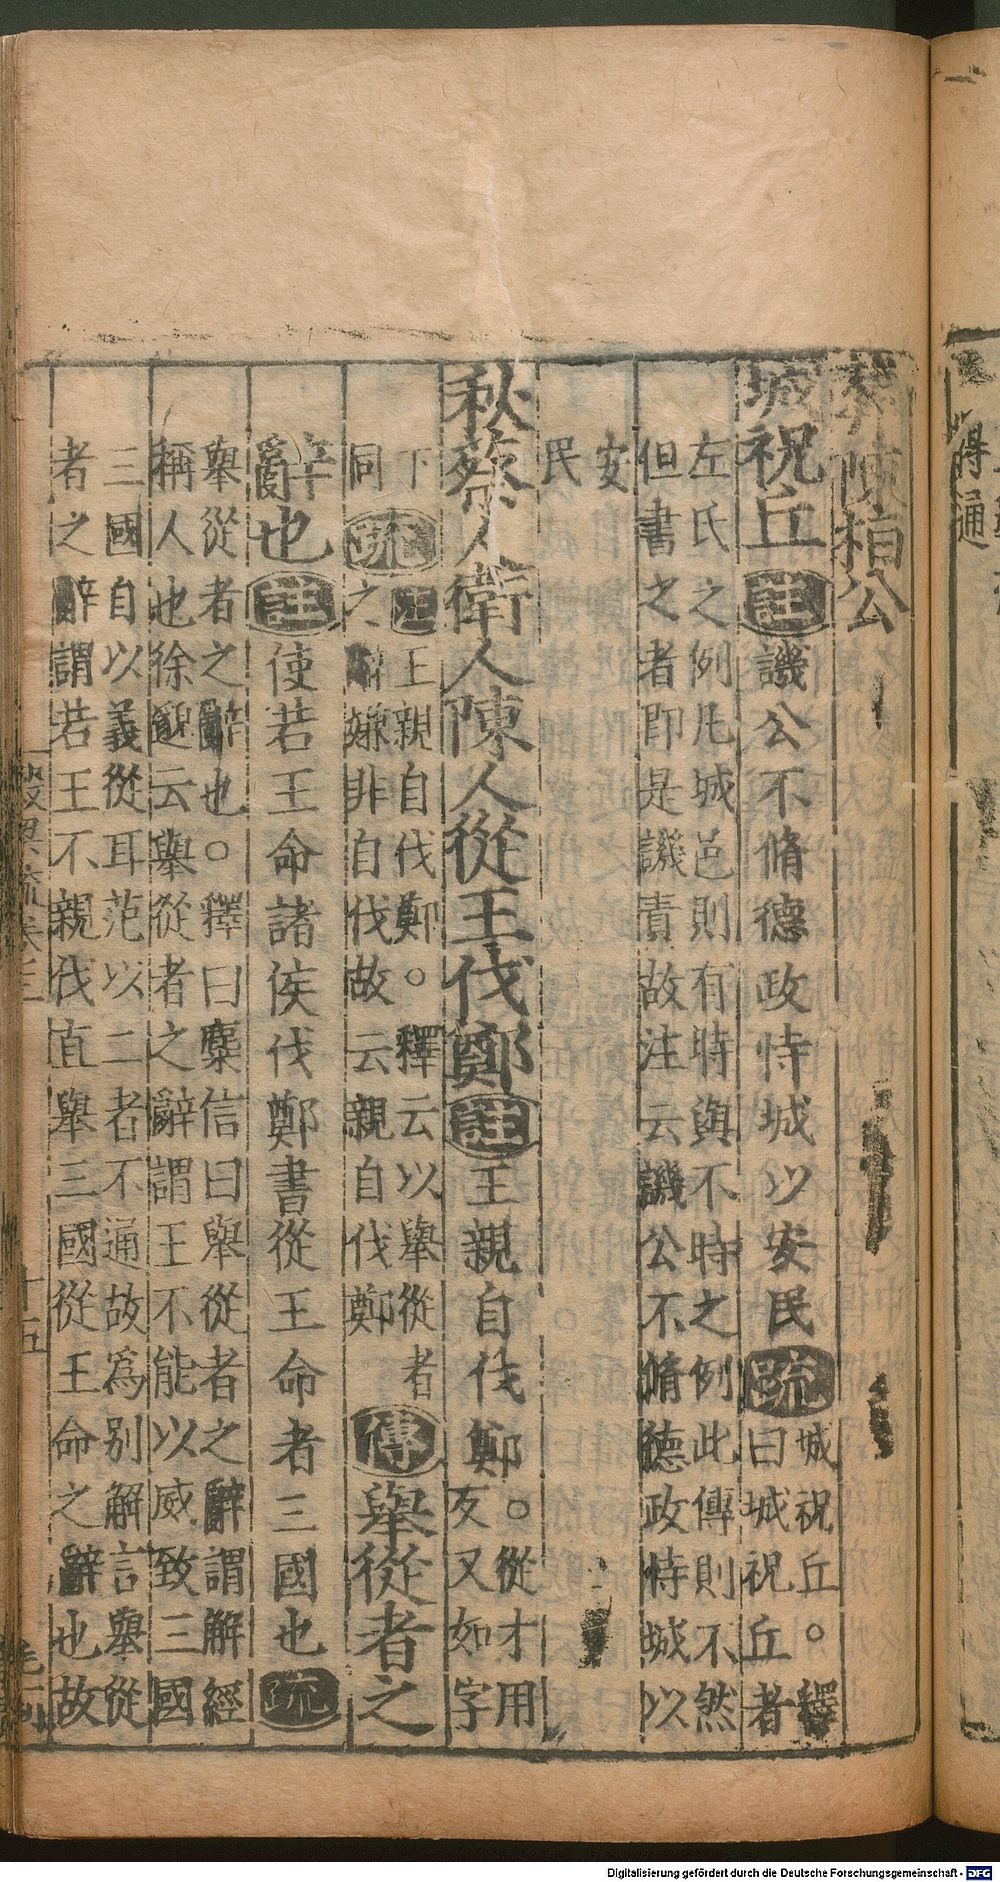 葬陳桓公
城祝丘註譏公不脩德政恃城以安民疏城祝丘○釋曰城祝丘者
左氏之例凡城邑則有時與不時之例此傳則不然
但書之者即是譏責故注云譏公不脩德政恃城以
安
民
秋蔡人衛人陳人從王伐鄭註王親自伐鄭○從才用反又如字
下王親自伐鄭○釋云以舉從者
同疏之辭嫌非自伐故云親自伐鄭傳舉從者之
辭也註使若王命諸侯伐鄭書從王命者三國也疏
舉從者之辭也○釋曰麋信曰舉從者之辭謂解經
稱人也徐邈云舉從者之辭謂王不能以威致三國
三國自以義從耳范以二者不通故為別解言舉從
者之辭謂若王不親伐直舉三國從王命之辭也故
梁疏卷三
十五
得通
Digitalisierung gefördert durch die Deutsche Forschungsgemeinschaft - DFG